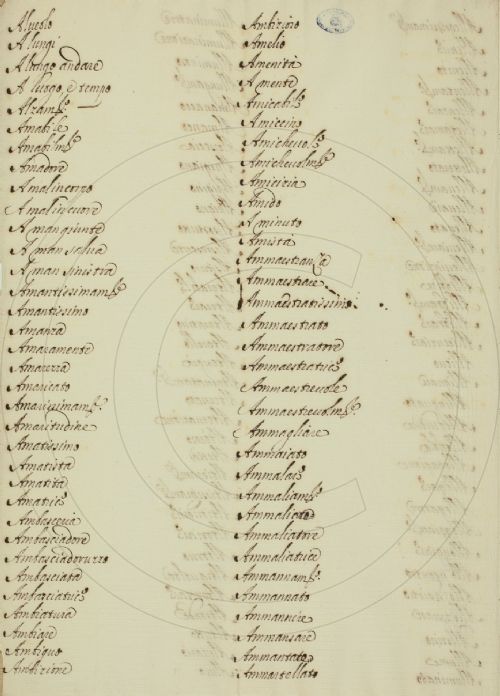 Alveolo
A lungi
A lungo andare
A luogo, e tempo
Alzam.to
Amabile
Amabilm.te
Amadore
A malincorpo
A malincuore
A man giunte
A man salva
A man sinistra
Amantissimam.te
Amantissimo
Amanza
Amaramente
Amarezza
Amaricato
Amarissimam.te
Amaritudine
Amatissimo
Amatista
Amatita
Amatrice
Ambasceria
Ambasciadore
Ambasciadoruzzo
Ambasciata
Ambasciatrice
Ambiatura
Ambiare
Ambiguo
Ambizione
Ambizioso
Amelio
Amenità
A mente
Amicabile
Amiccino
Amichevole
Amichevolm.te
Amicizia
Amido
A minuto
Amistà
Ammaestranza
Ammaestrare
Ammaestratissimo
Ammaestrato
Ammaestratore
Ammaestratrice
Ammaestrevole
Ammaestrevolm.te
Ammagliare
Ammaiato
Ammalare
Ammaliam.to
Ammaliare
Ammaliatore
Ammaliatrice
Ammannam.to
Ammannato
Ammannire
Ammansare
Ammantato
Ammantellato